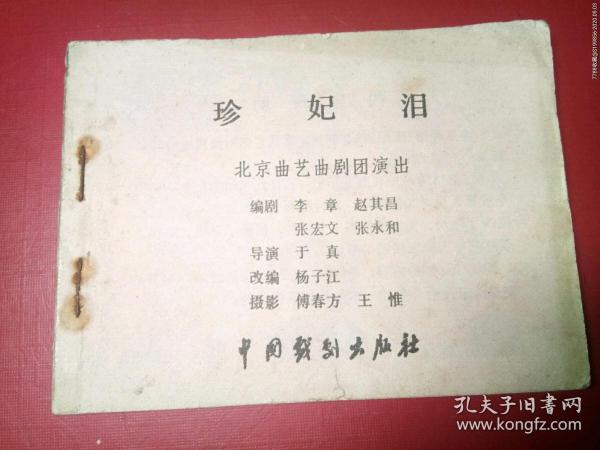 珍妃泪
北京曲艺曲剧团演出
编剧 李章 赵其昌
张宏文 张永和
导演 于真
改编 杨子江
摄影 傅春方 王惟
中国戏剧出版社
孔夫子旧书网
www.kongfz.com